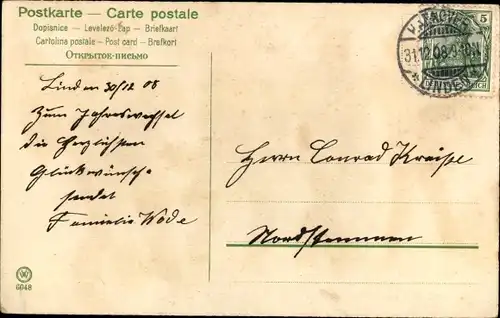 Postkarte — Carte postale
Dopisnice — Levelező-Lap — Briefkaart
Cartolina postale — Post card — Brefkort
Открытое письмо
HANNOVER
31.12.08.
LINDEN
5
REICH
Linden 30/12 08
Zum Jahreswechsel
die herzlichsten
Glückwünsche
sendet
Familie Wode
Herrn Conrad Kreipe
Nordstemmen
6948